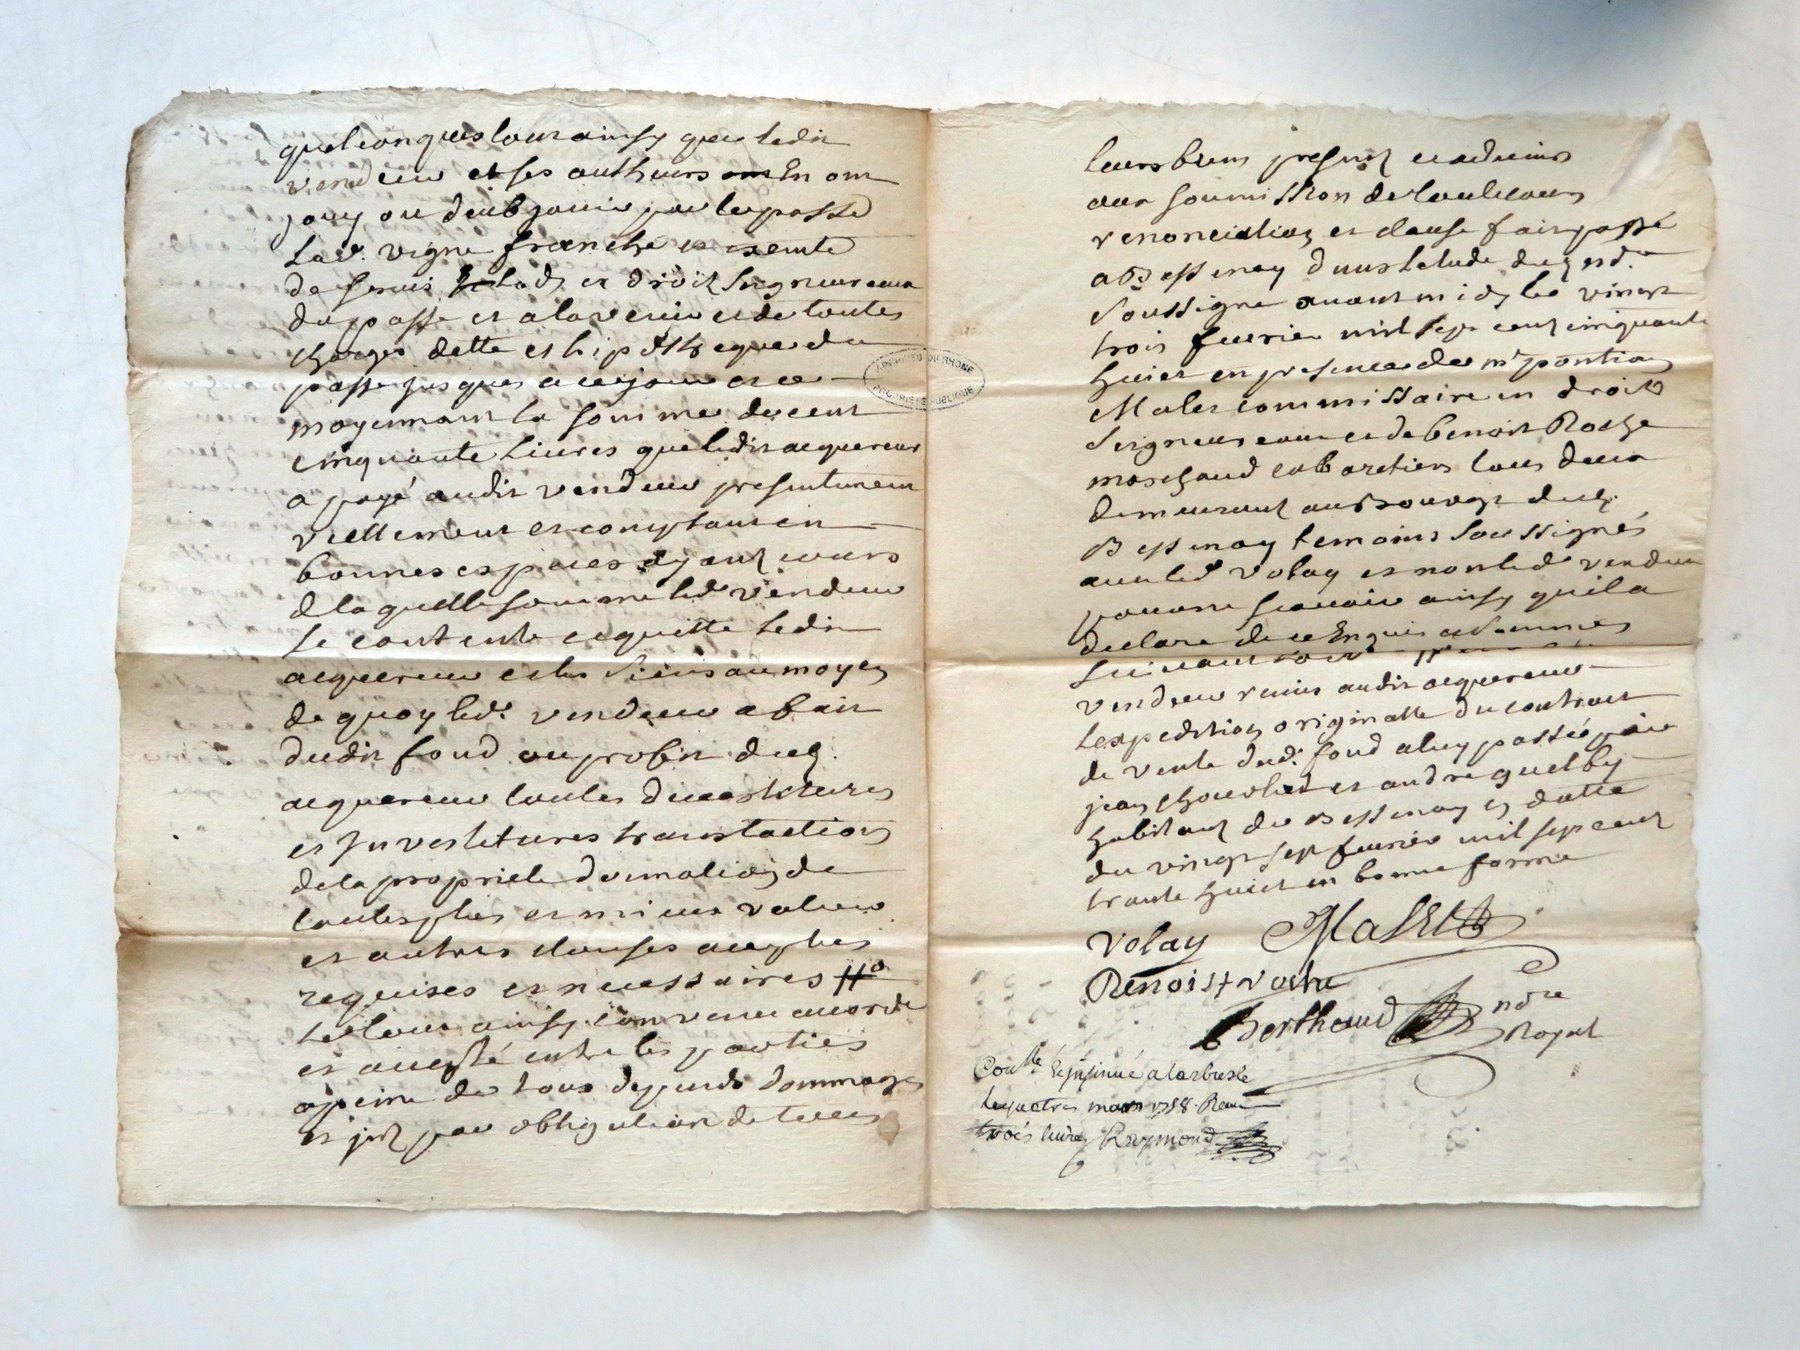 quelconques tout ainsy que ledit
vendeur et ses autheurs en ont
jouy ou deub jouir par le passé
lad. vigne franche et exemte
de servis et lods et droit seigneuraux
du passé et a lavenir et de toutes
charges dette et hipotheque du
passe jusques a ce jour et ce
moyennant la somme de cent
cinquante livres que ledit acquereur
a payé audit vendeur presentement
reellement et comptant en
bonnes especes ayant cours
de laquelle somme led. vendeur
se contente et quitte ledit
acquereur et les siens au moyen
de quoy led. vendeur a fait
dudit fond au profit dud.
acquereur toutes devestitures
et Investitures translation
de la propriete donnation de
toutes plus et mieux value
et autres clauses au plus
requises et necessaires
le tout ainsy convenu accordé
et accepté entre les parties
a peine de tous depends dommages
et par obligation de tous
leurs biens presents et advenir
aux soumission de toutes cours
renonciation et clause fait et passé
a Bessenay dans letude du nore
soussigne avant midy le vingt
trois fevrier mil sept cent cinquante
huict en presence de mr pontian
Malet commissaire en droits
seigneuraux et de benoit Roche
marchand cabaretier tous deux
demeurant au Bourg dud.
Bessenay temoins soussignés
avec led. Volay et non led. vendeur
pour ne scavoir ainsy quil a
declaré de ce Enquis et sommés
suivant
vendeur remis audit acquereur
lexpedition originalle du contract
de vente dud. fond a luy passé par
jean et andre guelby
habitant de Bessenay en datte
du vingt sept fevrier mil sept cent
trante huict en bonne forme
Volay Malet
Benoist roche
Berthaud nore
Royal
Conlle & insinué a larbresle
le quatre mars 1758. Recu
trois livres Raymond
ARCHIVES DU RHONE
PROPRIETE PUBLIQUE